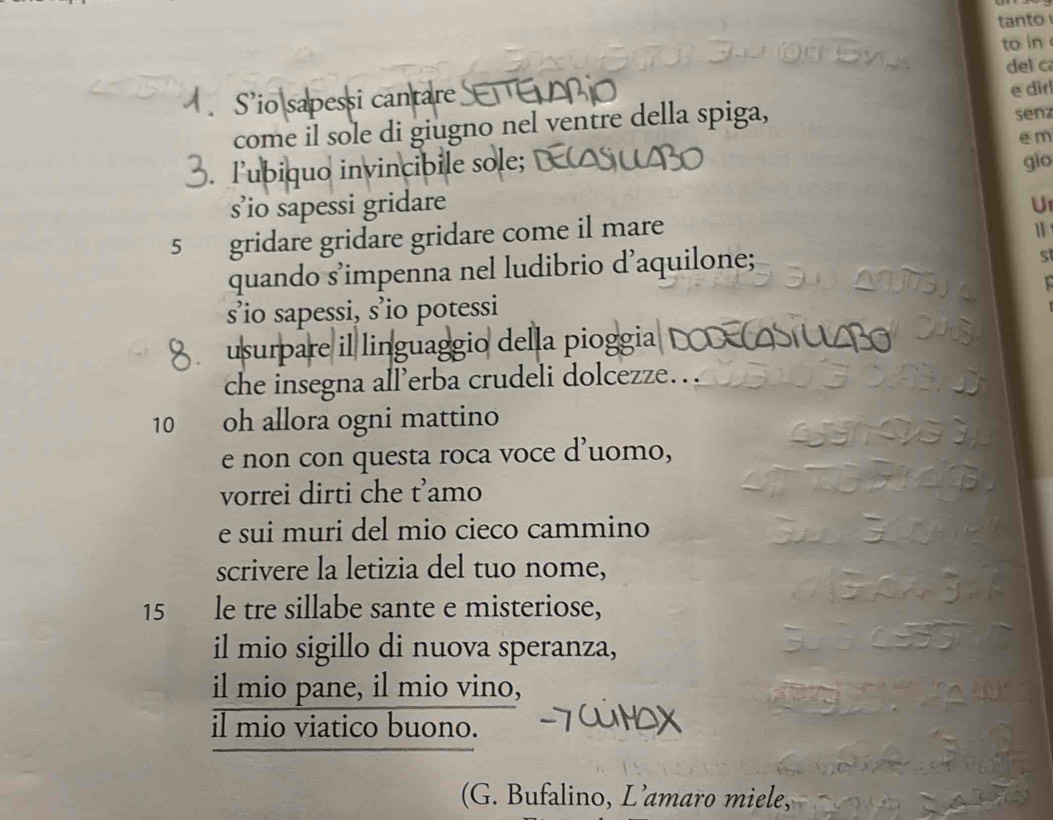 1. S'io sapessi cantare SETTENARIO
come il sole di giugno nel ventre della spiga,
3. l'ubiquo invincibile sole; DECASILLABO
s'io sapessi gridare
5 gridare gridare gridare come il mare
quando s'impenna nel ludibrio d'aquilone;
s'io sapessi, s'io potessi
8. usurpare il linguaggio della pioggia DODECASILLABO
che insegna all'erba crudeli dolcezze...
10 oh allora ogni mattino
e non con questa roca voce d'uomo,
vorrei dirti che t'amo
e sui muri del mio cieco cammino
scrivere la letizia del tuo nome,
15 le tre sillabe sante e misteriose,
il mio sigillo di nuova speranza,
il mio pane, il mio vino,
il mio viatico buono. → CLIMAX
(G. Bufalino, L'amaro miele,
tanto
to in
del ca
e dirl
senz
e m
gio
Il
st